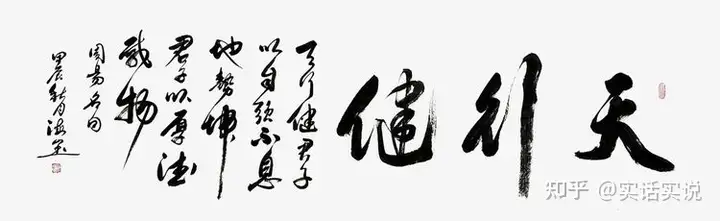 天行健
天行健君子
以自强不息
地勢坤
君子以厚德
載物
周易名句
甲辰秋月海
知乎 @实话实说